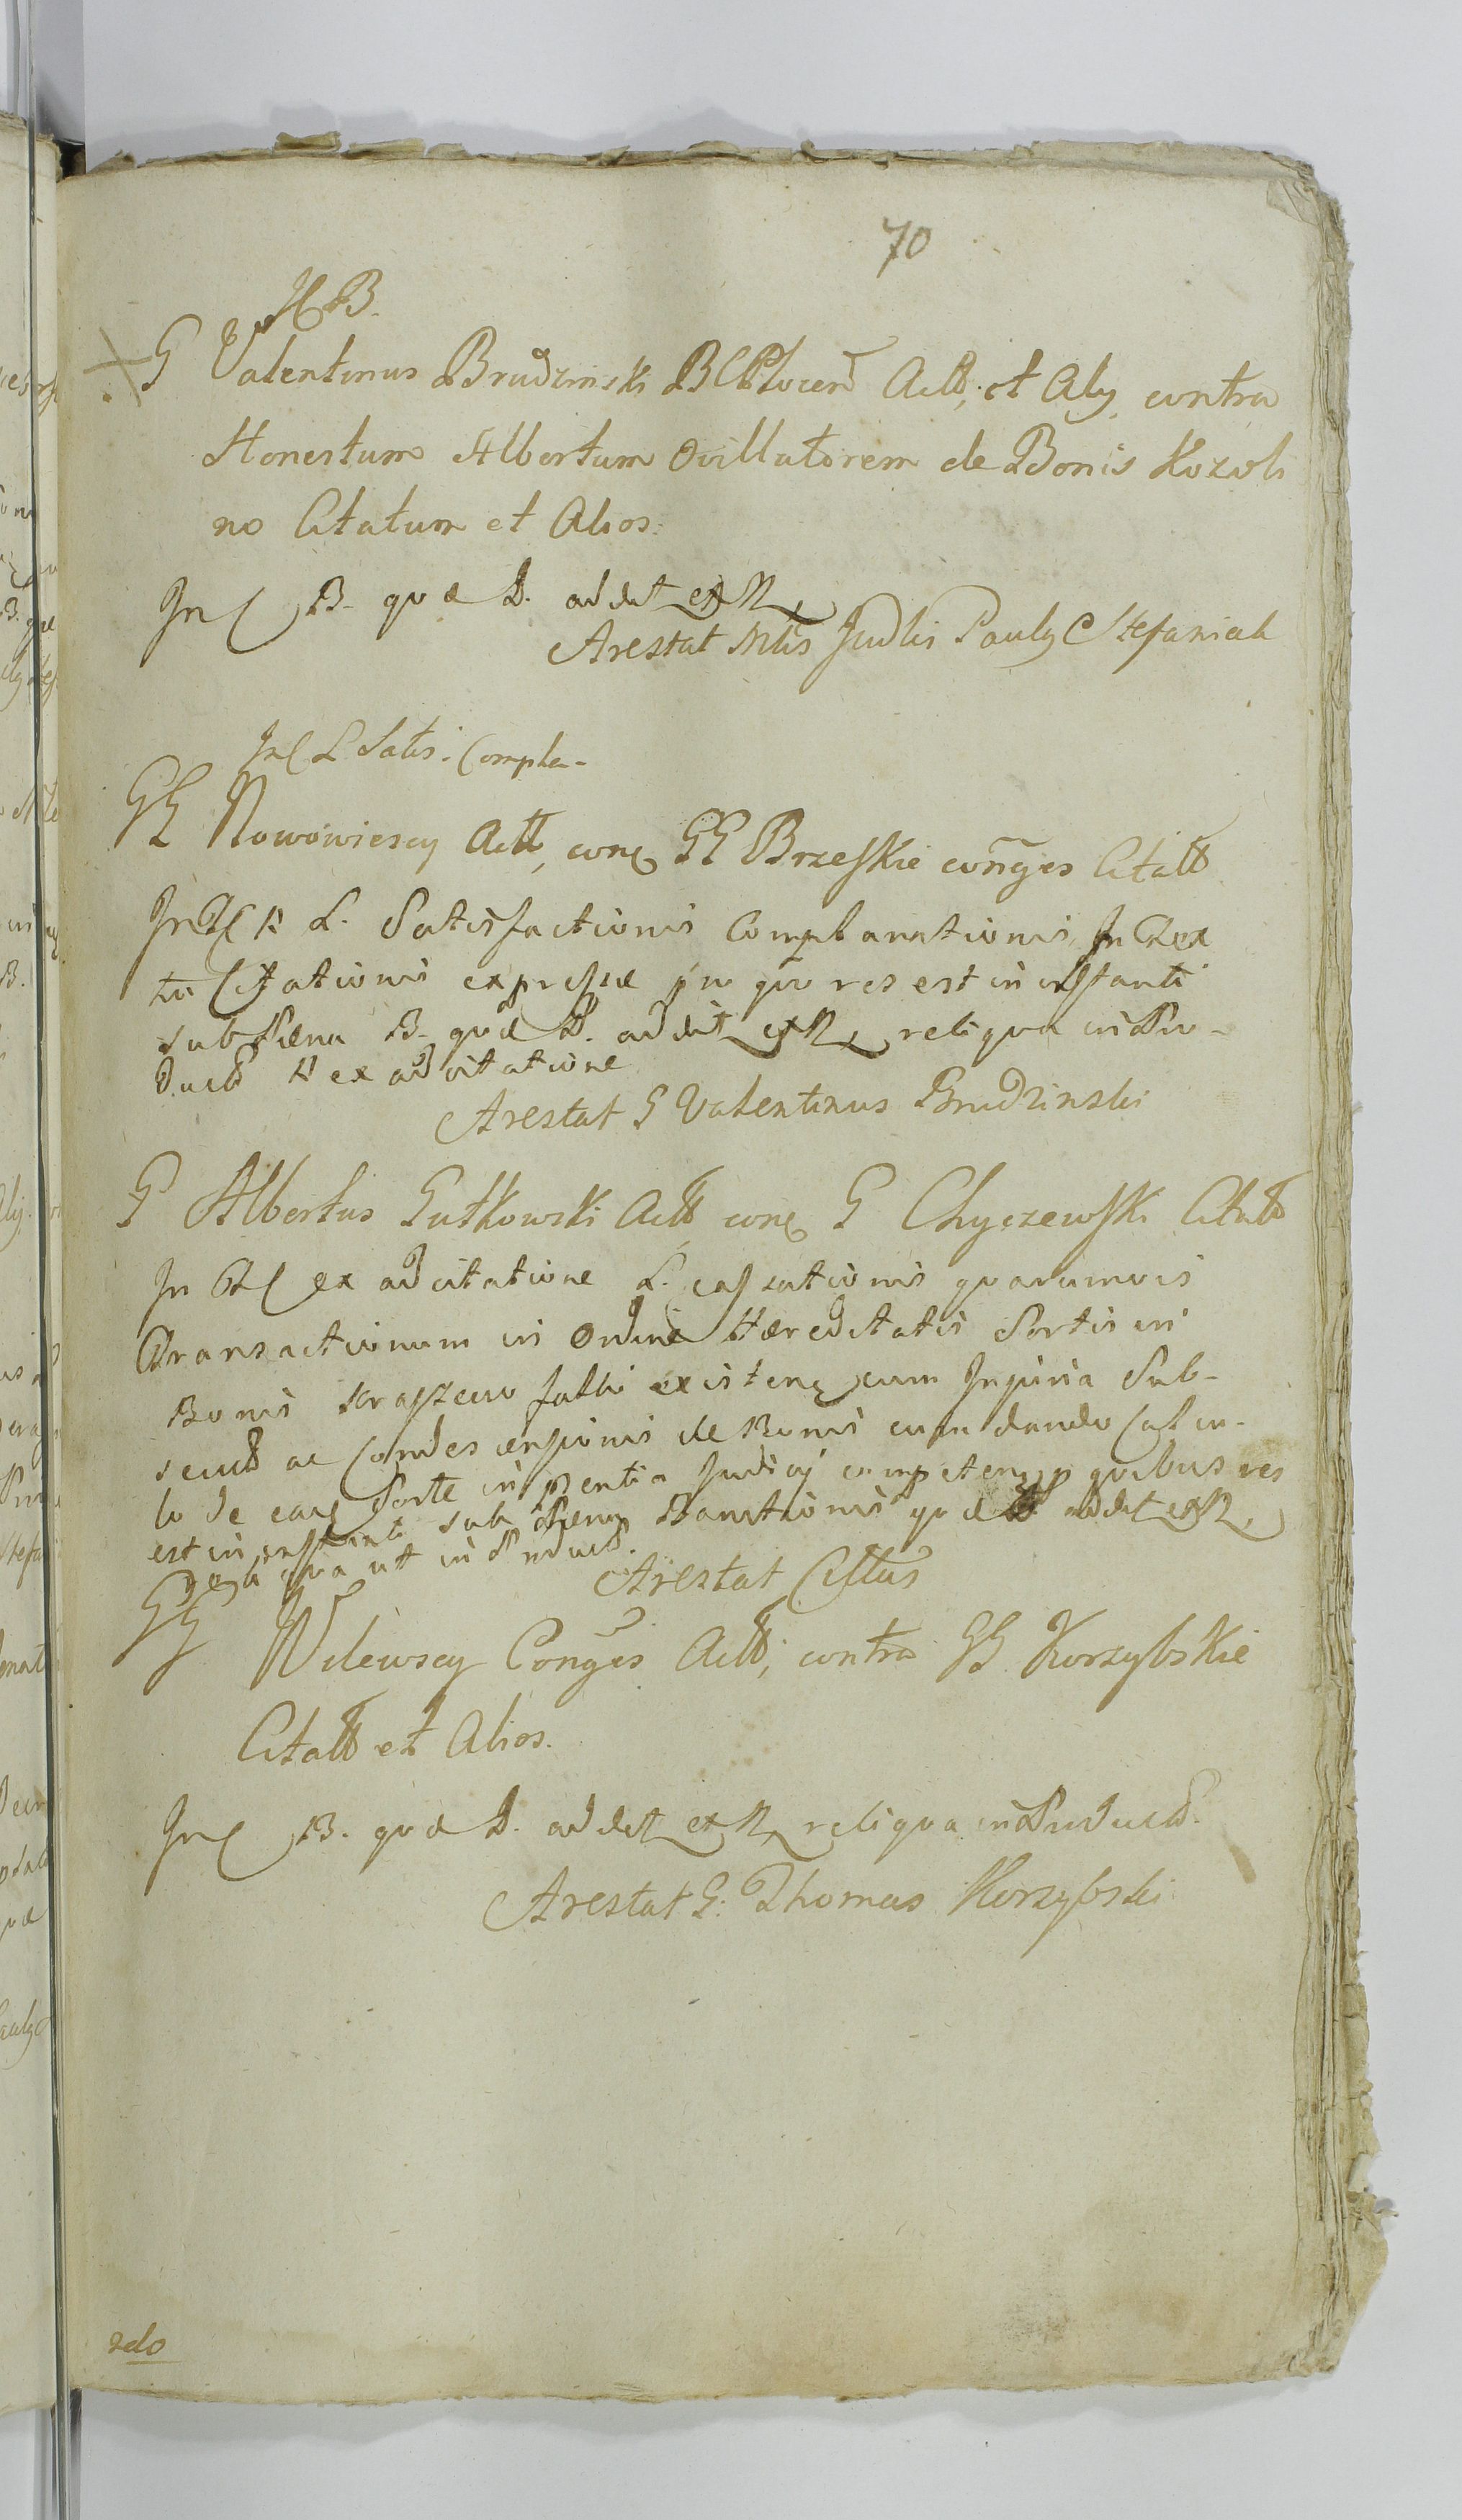 70
G Valentinus Brudzinski B C Plocen Actt, et Aly contra
Honestum Albertum Ovillatorem de Bonis Kozoli
no Citatum et Alios.
In C B. quæ D. addet ex N
Arestat Mtis Judlis Pauly Stefaniak
In C L Satis. Compla-
GG Nowowiescy Actt, conq GG Brzeskie conges Citatt
In L. Satisfactionis Complanationis In Tex
tu Citationis expressæ pro quo res est in instanti
sub Pæna B. quæ D. addet ex N reliqua in Pro-
ductt ex adcitatione
Arestat G Valentinus Brudzinski
G Albertus Gutkowski Actt conq G Chyczewski Citatt
In ex adcitatione L. cassationis quarumvis
Transactionum in Ordine Hæreditatis Sortis in
Bonis Kraszewo existenq cum Injuria Sub-
ac Condescensionis de Bonis cum dando Calcu-
lo de eaq Sorte in pentia Judicy competenq p quibus res
est in instanti sub Pæna Bannitionis quæ D addet ex N
reliqua ut in Productt.
Arestat Cittus
GG Wilewscy Conges Actt, contra GG Korzybskie
Citatt et Alios.
In C B. quæ D. addet ex N reliqua in Productt.
Arestat G. Thomas Korzybski